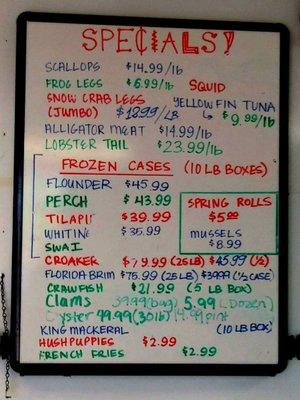 SPECIALS!
SCALLOPS $14.99/lb
FROG LEGS $6.99/lb SQUID
SNOW CRAB LEGS YELLOWFIN TUNA
(JUMBO) $12.99/LB $9.99/lb
ALLIGATOR MEAT $14.99/lb
LOBSTER TAIL $23.99/lb
FROZEN CASES (10 LB BOXES)
FLOUNDER $45.99
PERCH $43.99 SPRING ROLLS
TILAPI $39.99 $5.00
WHITING $35.99 MUSSELS
SWAI $8.99
CROAKER $79.99 (25LB) $45.99 (½)
FLORIDA BRIM $75.99 (25LB) $39.99 (½ CASE)
CRAWFISH $21.99 (5 LB BOX)
Clams 39.99 (bag) 5.99 (Dozen)
Oyster 99.99 (30lb) 14.99 pint
KING MACKERAL (10LB BOX)
HUSHPUPPIES $2.99
FRENCH FRIES $2.99